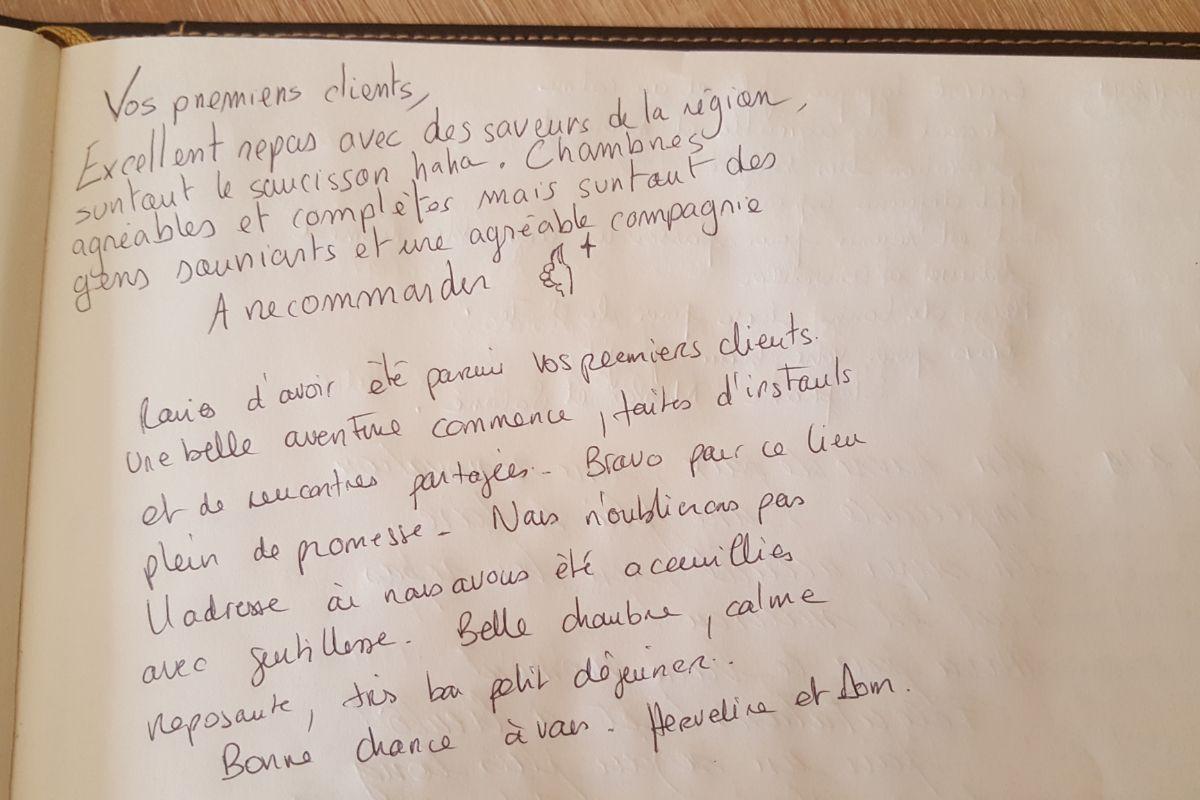 Vos premiers clients,
Excellent repas avec des saveurs de la région,
surtout le saucisson haha. Chambres
agréables et complètes mais surtout des
gens souriants et une agréable compagnie
A recommander +
Ravies d'avoir été parmi vos premiers clients.
Une belle aventure commence, faites d'instants
et de rencontres partagées - Bravo pour ce lieu
plein de promesse - Nous n'oublierons pas
l'adresse où nous avons été accueillies
avec gentillesse. Belle chambre, calme
reposante, très bon petit déjeuner.
Bonne chance à vous. Herveline et Dom.